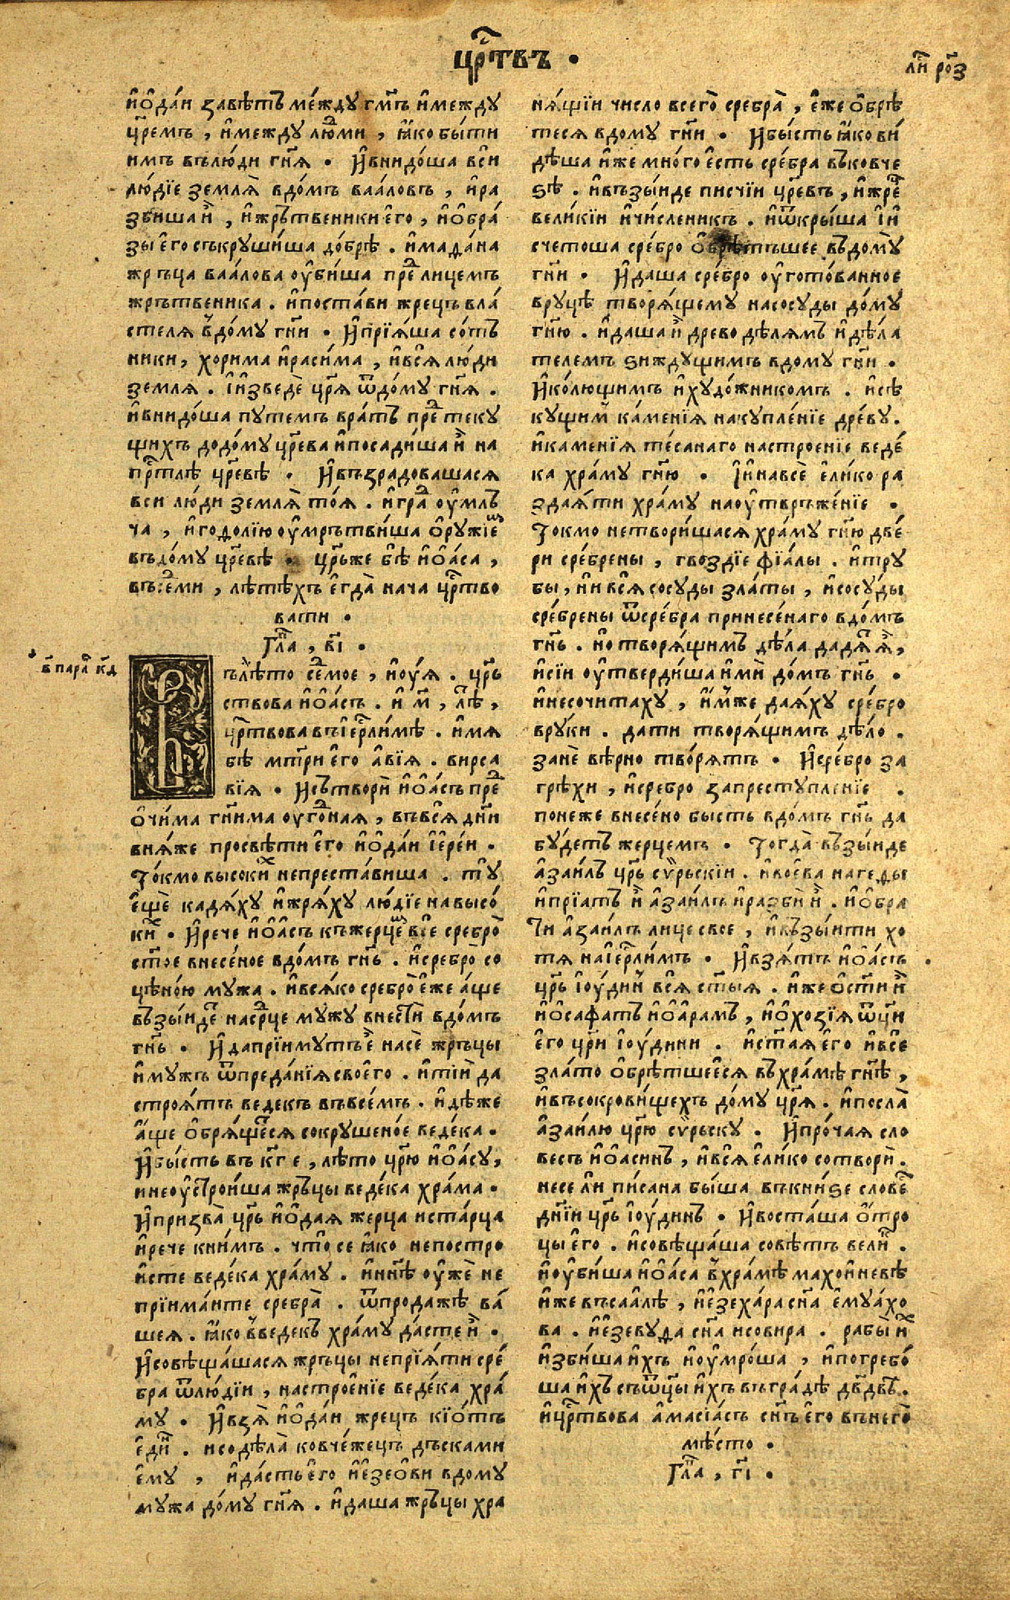 црⷭ҇твъ ·
ли роз
иѡдаи завѣтъ между гмⷭ҇ъ имежду
цр҃емъ , имежду людми , ꙗко быти
имъ вълюди гнⷭ҇я · Ивнидоша вси
людїе земля вдомъ вааловъ , ира
збиша и , ижрътвеники его , иобра
зы его съкрушиша добрѣ . имаⷮѳана
жръца ваалова убиша преⷣ лицемъ
жрътвеника . ипостави жрецъ вла
стеля вдому гнⷭ҇и · Ипрїяша сотъ
ники, хорима ирасима , ився люди
земля . Їизведе цр҃я ѿдому гнⷭ҇я .
ивнидоша путемъ вратъ преⷣ теку
щихъ додому цр҃ева ипосадиша и на
прⷭ҇тлѣ цр҃евѣ · Ивъзрадовашася
вси люди земля тоя . играⷣ умлъ
ча , игодолїю умрътвиша оружїеⷨ
въдому цр҃евѣ · цр҃ьже бѣ иѡаса ,
въ седми , лѣтѣхъ егда нача црⷭ҇тво
вати ·
Глава , в҃і ·
в҃ парал к҃д
Вълѣто седмое , иоуя . цр҃ь
ствова иѡасъ . и м҃ , лѣⷮ ,
црⷭ҇твова въїерⷭ҇лимѣ . имя
бѣ мтⷬ҇и его авїя . вирса
вїя · Исътвори иѡасъ преⷣ
очима гнⷭ҇има угодная , въвся днⷩ҇и
вняже просвѣти его иѡдаи їереи .
Токмо высокиⷯ непреставиша . ту
еще кадяху ижряху людїе навысо
киⷯ · Ирече иѡасъ къжерцеⷨ все сребро
ст҃ое внесеное вдомъ гнⷭ҇ь . исребро со
цѣною мужа . ивсяко сребро еже аще
възыидеⷮ насрⷣце мужу внести вдомъ
гнⷭ҇ь · Идапрїимутъ е насе жръцы
имужъ ѿпреданїя своего . итїи да
строятъ ведекъ въвсемъ . идѣже
аще обрящеся сокрушеное ведека ·
Ибысть въ к҃г е , лѣто цр҃ю иѡасу,
инеустроиша жръцы ведека храма .
Ипризва цр҃ь иѡдая жерца истарца
ирече книмъ . что се ꙗко непостро
исте ведека храму . инн҃ѣ уже не
прїимаите сребра . ѿпродажѣ ва
шея . ꙗко введекъ храму дасте и ·
Исовѣщашася жръцы непрїяти сре
бра ѿлюдїи , настроенїе ведека хра
му · Ивзя иѡдаи жрецъ кїотъ
един . исодѣла ковчежецъ дъсками
ему , идастьего иезеови вдому
мужа дому гнⷭ҇я . идаша жръцы хра
нящїи число всего сребра , еже обрѣ
теся вдому гнⷭ҇и · Ибысть ꙗко ви
дѣша иже много есть сребра въковче
ѕѣ . ивъзыиде писчїи цр҃евъ , ижреⷰ
великїи ичисленикъ . иѿкрыша їи
счетоша сребро обрѣтъшее въдому
гнⷭ҇и · Идаша сребро уготованное
вруцѣ творящему насосуды дому
гнⷭ҇ю . идаша и древо дѣлямъ идѣла
телемъ ѕиждущимъ вдому гнⷭ҇и .
Иколющимъ ихудожникомъ . исѣ
кущим каменїя накупленїе древу .
икаменїя тесанаго настроенїе веде
ка храму гнⷭ҇ю · Їинавсе елико ра
здаяти храму наутвръженїе ·
Токмо нетворишася храму гнⷭ҇ю две
ри сребрены , гвоздїе фїалы . итру
бы, ни вся сосуды златы , исосуды
сребрены ѿсребра принесенаго вдомъ
гнⷭ҇ь . но творящимъ дѣла дадять я ,
исїи утвердиша ими домъ гнⷭ҇ь ·
инесочитаху , имже даяху сребро
вруки . дати творящимъ дѣло .
зане вѣрно творятъ · Исребро за
грѣхи , исребро запреступленїе .
понеже внесено бысть вдомъ гнⷭ҇ь да
будетъ жерцемъ · Тогда възыиде
азаилъ цр҃ь сѵрьскїи . ивоева нагеды
ипрїатъ и азаилъ иразби и . иобра
ти азаилъ лице свое , ивъзыити хо
тя наїерⷭ҇лимъ · Ивзятъ иѡасъ
цр҃ь їоудин вся ст҃ыя . иже остиⷧ҇ и
иосафатъ иѡарамъ , иохозїя ѿци
его цр҃и їоудини . ист҃ая его ивсе
злато обрѣтшееся въхрамѣ гнⷭ҇ѣ ,
ивъсокровищехъ дому цр҃я . ипосла
азаилю цр҃ю сѵрьску . Ипрочая сло
весъ иѡасинъ , ився елико сотвори .
несе ли писана быша вкниѕе словеⷭ
днїи цр҃ь їоудинъ · Ивосташа отро
цы его . исовѣщаша совѣтъ велиⷦ .
иоубиша иѡаса вхрамѣ махоиневѣ
иже въсаалѣ , иезехара сн҃а емуахо
ва . иезевуда сн҃а исовира . рабы иⷯ
избиша ихъ иоумроша , ипогребо
ша ихъ съѿцы ихъ въградѣ дв҃двъ.
ицрⷭ҇твова амасїасъ сн҃ъ его вънего
мѣсто ·
Глава , г҃і ·